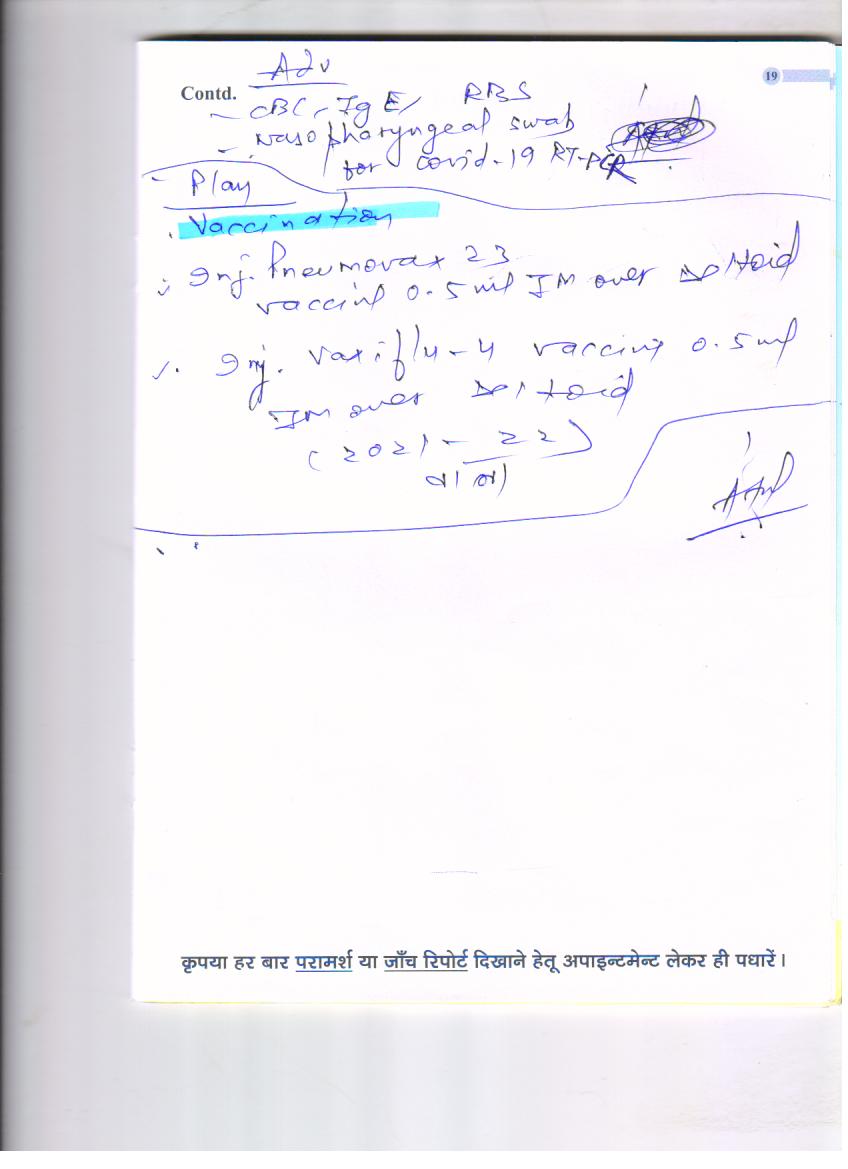 Adv
19
Contd.
- CBC, IgE, RBS
- Nasopharyngeal swab
for covid-19 RT-PCR
Plan
Vaccination
Inj. Pneumovax 23
vaccine 0.5 ml IM over Deltoid
Inj. Vaxiflu-4 vaccine 0.5 ml
IM over Deltoid
(2021-22)
वाला
कृपया हर बार परामर्श या जाँच रिपोर्ट दिखाने हेतू अपाइन्टमेन्ट लेकर ही पधारें।